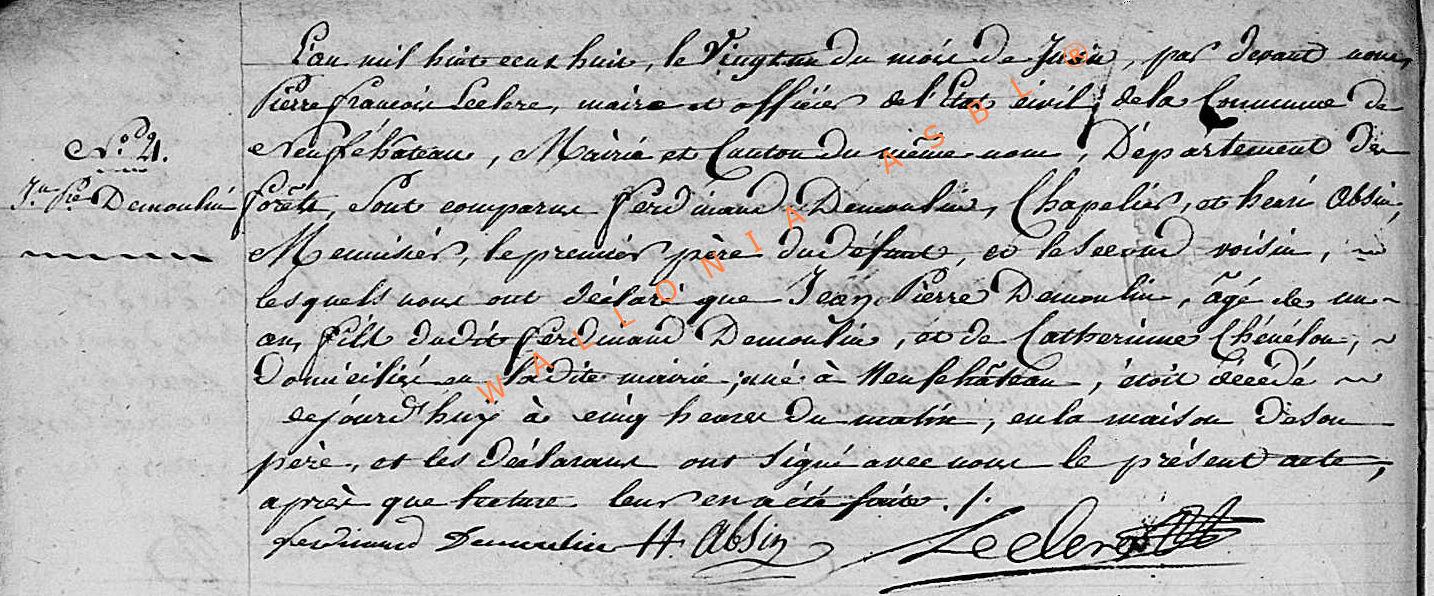 L'an mil huit cent huit, le Vingt un du mois de Juin, par devant nous,
Pierre francois Leclere, maire et officier de l'Etat civil de la Commune de
Neufchâteau, Mairie et Canton du même nom, Département des
forêts, Sont comparus ferdinand Demoulin, Chapelier, et henri Absin,
Menuisier, le premier père du défunt, et le second voisin, ~
lesquels nous ont déclaré que Jean Pierre Demoulin, âgé de un
an, fils dudit ferdinand Demoulin, et de Catherinne Chénélon, ~
Domicilié en ladite mairie, né à Neufchâteau, étoit décédé ~
cejourd'huÿ à cinq heures du matin, en la maison de son
père, et les déclarans ont signé avec nous le présent acte,
après que lecture leur en a été faite ./.
ferdinand Demoulin H Absin Leclere
N.° 21.
J.n P.re Demoulin
WALLONIA ASBL ®